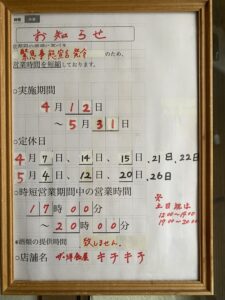 お知らせ
緊急事態宣言発令のため、
営業時間を短縮しております。
○実施期間
4月12日
～5月31日
○定休日
4月7日、14日、15日、21日、22日
5月4日、12日、20日、26日
○時短営業期間中の営業時間
17時00分
～20時00分
*酒類の提供時間 致しません。
※
土日祝は
12:00～15:00
17:00～20:00
○店舗名 ザ・洋食屋 キチキチ